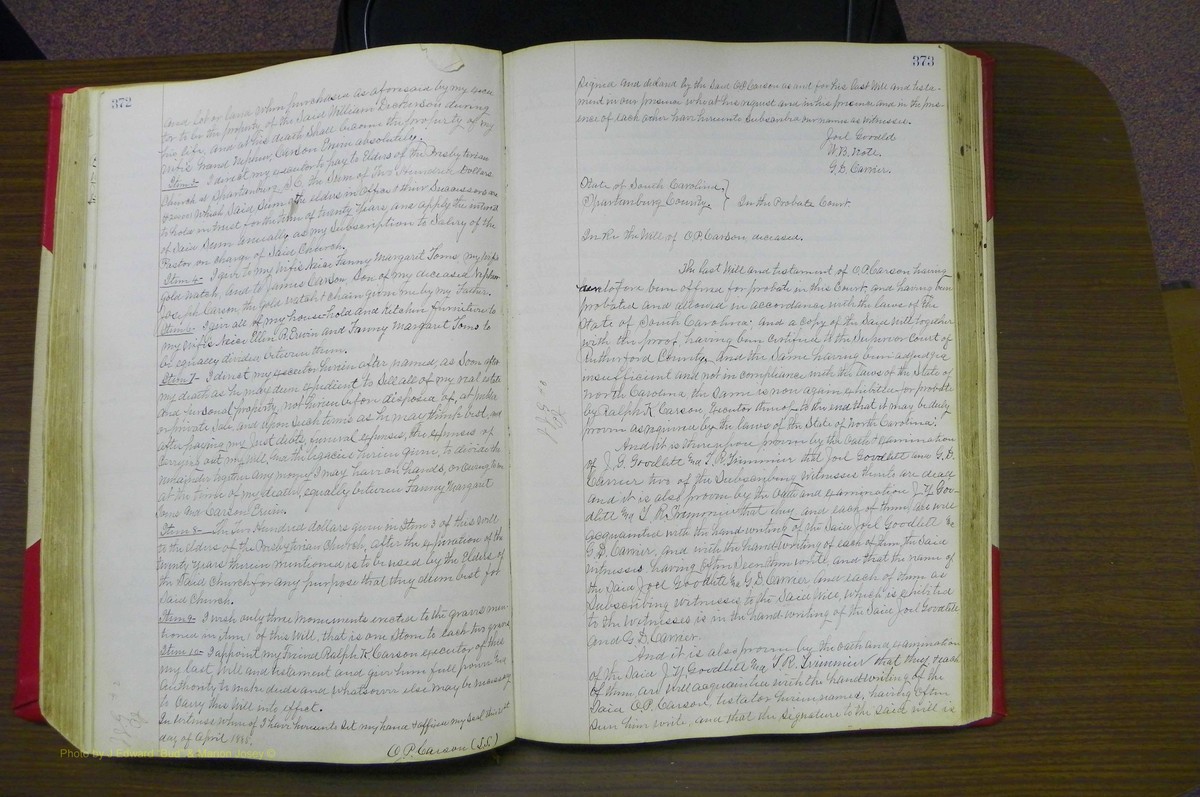 372
and lot or land when purchased as aforesaid by my execu
tor to be the property of the said William Dickerson during
his life, and at his death shall become the property of my
wife's Grand Nephew, Carson Erwin absolutely.
Item 3- I direct my executor to pay to Elders of the Presbyterian
Church at Spartanburg S.C. the Sum of Two Hundred Dollars
which said Sum the elders in office & their Successors are
to hold in trust for the term of twenty years, and apply the interest
of said sum annually as my Subscription to Salary of the
Pastor in charge of said Church.
Item 4- I give to my wife's Neice Fanny Margaret Toms, my wife's
Gold Watch, and to James Carson, Son of my deceased Nephew
Joseph Carson the Gold watch & chain given me by my Father.
I give all of my house-hold and Kitchen furniture to
my Wife's Neice Ellen R. Erwin and Fanny Margaret Toms to
be equally divided between them.
Item 7- I direct my executor herein after named, as Soon after
my death as he may deem expedient, to Sell all of my real estate
and personal property, not herein before disposed of, at public
or private Sale, and upon such terms as he may think best, and
after paying my just debts, funeral expenses, the expenses of
my Will, and the legacies herein given, to divide the
together with any money I may have on hands, or owing to me
at the time of my death, equally between Fanny Margaret
Toms and Carson Erwin.
Item 8- The Two Hundred dollars given in Item 3 of this Will
to the Elders of the Presbyterian Church, after the expiration of the
twenty years therein mentioned is to be used by the Elders of
the Said Church for any purpose that they deem best for
Said Church.
Item 9- I wish only three Monuments erected to the graves men
tioned in Item 1 of this Will, that is one Stone to each two graves
Item 10- I appoint my Friend Ralph K. Carson executor of this
my last Will and testament and give him full power and
authority to make deeds and whatsoever else may be necessary
to carry this Will into effect.
In witness whereof I have hereunto Set my hand & affixed my Seal this
day of April
O.P. Carson (L.S.)
373
Signed and by the Said O.P. Carson as and for his last Will and testa-
ment in our presence who at his request and in his presence and in the pres-
ence of each other have hereunto Subscribed our names as witnesses.
Joel Goodlett
G.D. Carrier.
State of South Carolina }
Spartanburg County. } In the Probate Court.
In Re the Will of O.P. Carson, deceased.
The last Will and testament of O.P. Carson having
heretofore been offered for probate in this Court, and having been
probated and allowed in accordance with the laws of the
State of South Carolina; and a copy of the Said Will together
with the proof, having been certified to the Superior Court of
Rutherford County. And the Same having been adjudged
insufficient and not in compliance with the laws of the State of
North Carolina, the same is now again exhibited for probate
by Ralph K Carson executor thereof to the end that it may be duly
proven as required by the laws of the State of North Carolina.
And it is thereupon proven by the oath & examination
of J. Y. Goodlett and T. R. Trimmier that Joel Goodlett and G. D.
Carrier two of the Subscribing Witnesses thereto are dead
and it is also proven by the oath and examination J. Y. Goo-
dlett and T. R. Trimmier that they and each of them, are well
acquainted with the hand writing of the Said Joel Goodlett and
G.D. Carrier, and with the hand writing of each of them the Said
witnesses, having often Seen them write, and that the name of
the Said Joel Goodlett and G.D. Carrier and each of them as
Subscribing witnesses to the Said Will, which is exhibited
to the Witnesses is in the hand writing of the Said Joel Goodlett
and G. D. Carrier.
And it is also proven by the oath and examination
of the Said J. Y. Goodlett and T. R. Trimmier that they & each
of them are well acquainted with the handwriting of the
Said O.P. Carson, testator herein named, having often
Seen him write, and that the Signature to the Said Will is
Photo by J Edward "Bud" & Marion Josey ©